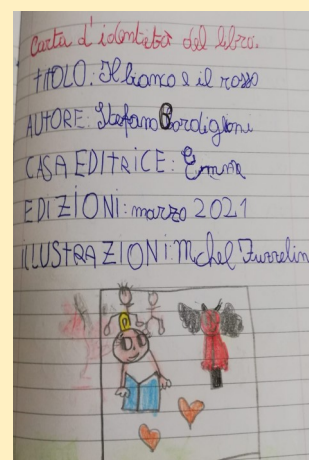 Carta d'identità del libro.
TITOLO: Il bianco e il rosso
AUTORE: Stefano Bordiglioni
CASA EDITRICE: Emme
EDIZIONI: marzo 2021
ILLUSTRAZIONI: Michel Fuzzellin